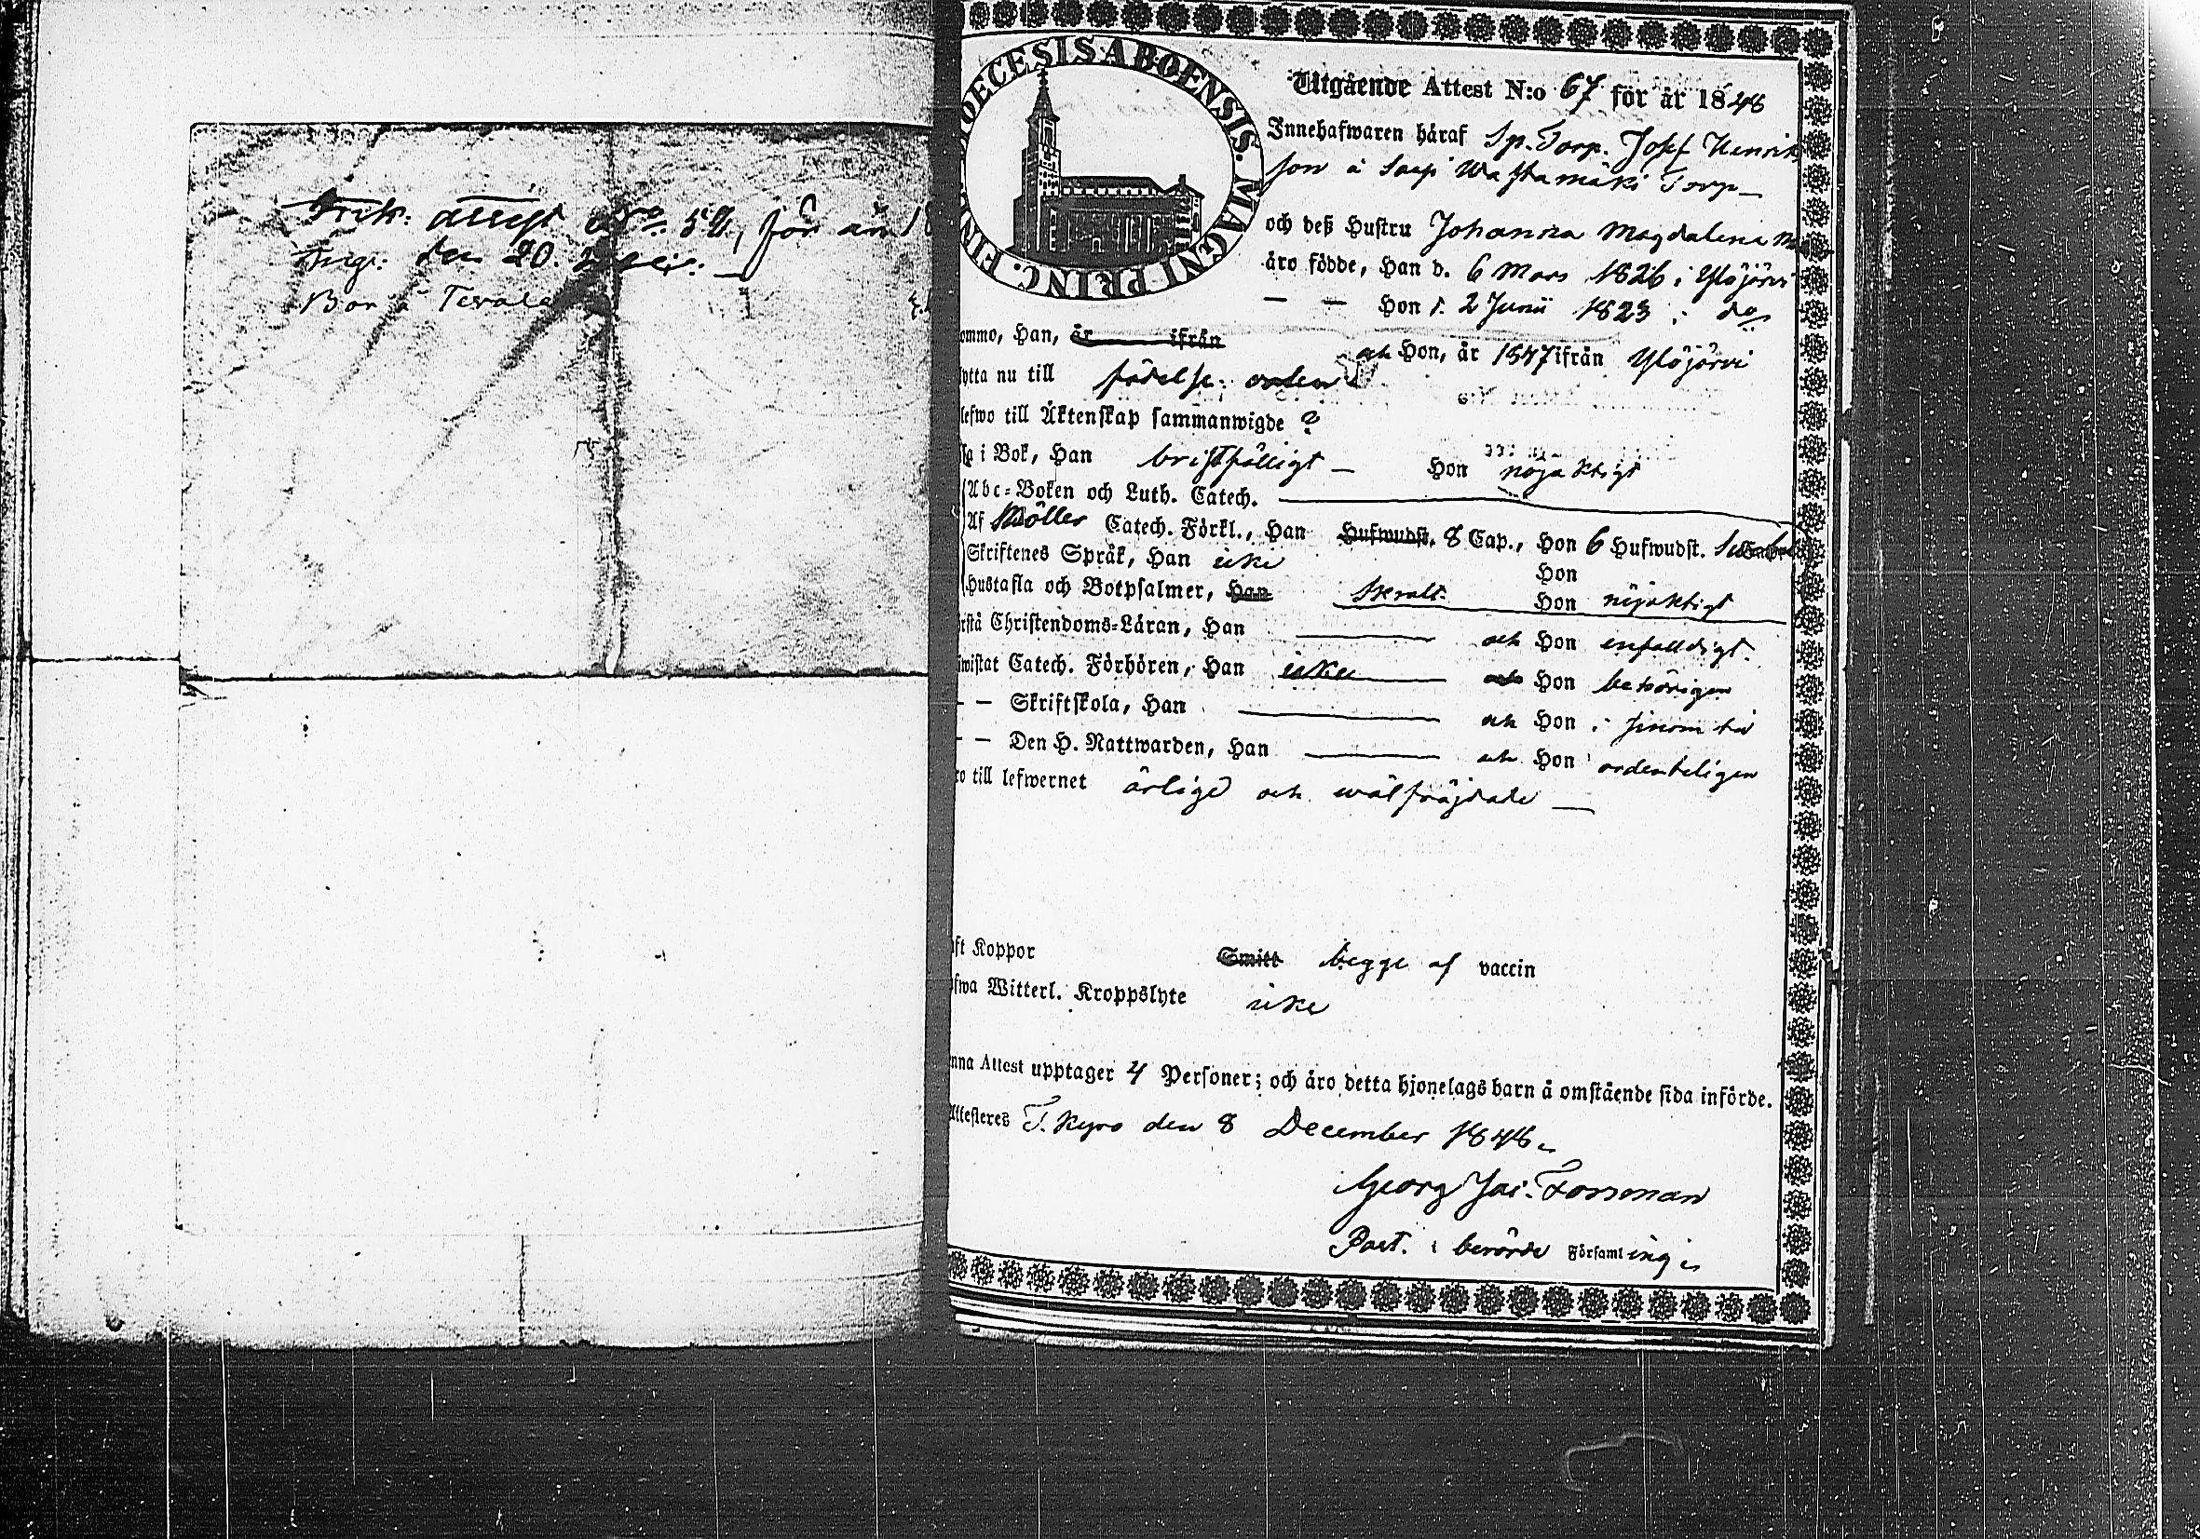 Attest No. 52, för år 18
den 20.
Bor å
DIOECESIS ABOENSIS. MAGNI PRINC. FIN
Utgående Attest N:o 67 för år 1848
Innehafwaren häraf Sp. Torp. Josef Henrik
son å Sasi Wastamäki Torp
och deß Hustru Johanna Magdalena
äro födde, Han d. 6 Mars 1826 i Ylöjärvi
— — Hon d. 2 Junii 1823 i do
ommo, Han, är ifrån och Hon, år 1847 ifrån Ylöjärvi
ytta nu till födelse-orten
lefwo till Äktenskap sammanwigde ?
sa i Bok, Han bristfälligt — Hon nöjaktigt
Abc-Boken och Luth. Catech.
Af Möller Catech. Förkl., Han Hufwudst. 8 Cap., Hon 6 Hufwudst.
Skriftenes Språk, Han icke Hon
Hustafla och Botpsalmer, Han Hon nöjaktigt
rstå Christendoms-Läran, Han och Hon enfaldigt.
wistat Catech. Förhören, Han icke och Hon behörigen
— — Skriftskola, Han och Hon i sinom tid
— — Den H. Nattwarden, Han och Hon ordenteligen
ro till lefwernet ärlige och wälfräjdade —
ft Koppor Smitt begge af vaccin
fwa Witterl. Kroppslyte icke
nna Attest upptager 4 Personer; och äro detta hjonelags barn å omstående sida införde.
Attesteres T. Kyro den 8 December 1848.
Georg Jac. Forsman
Past. i berörde Församling